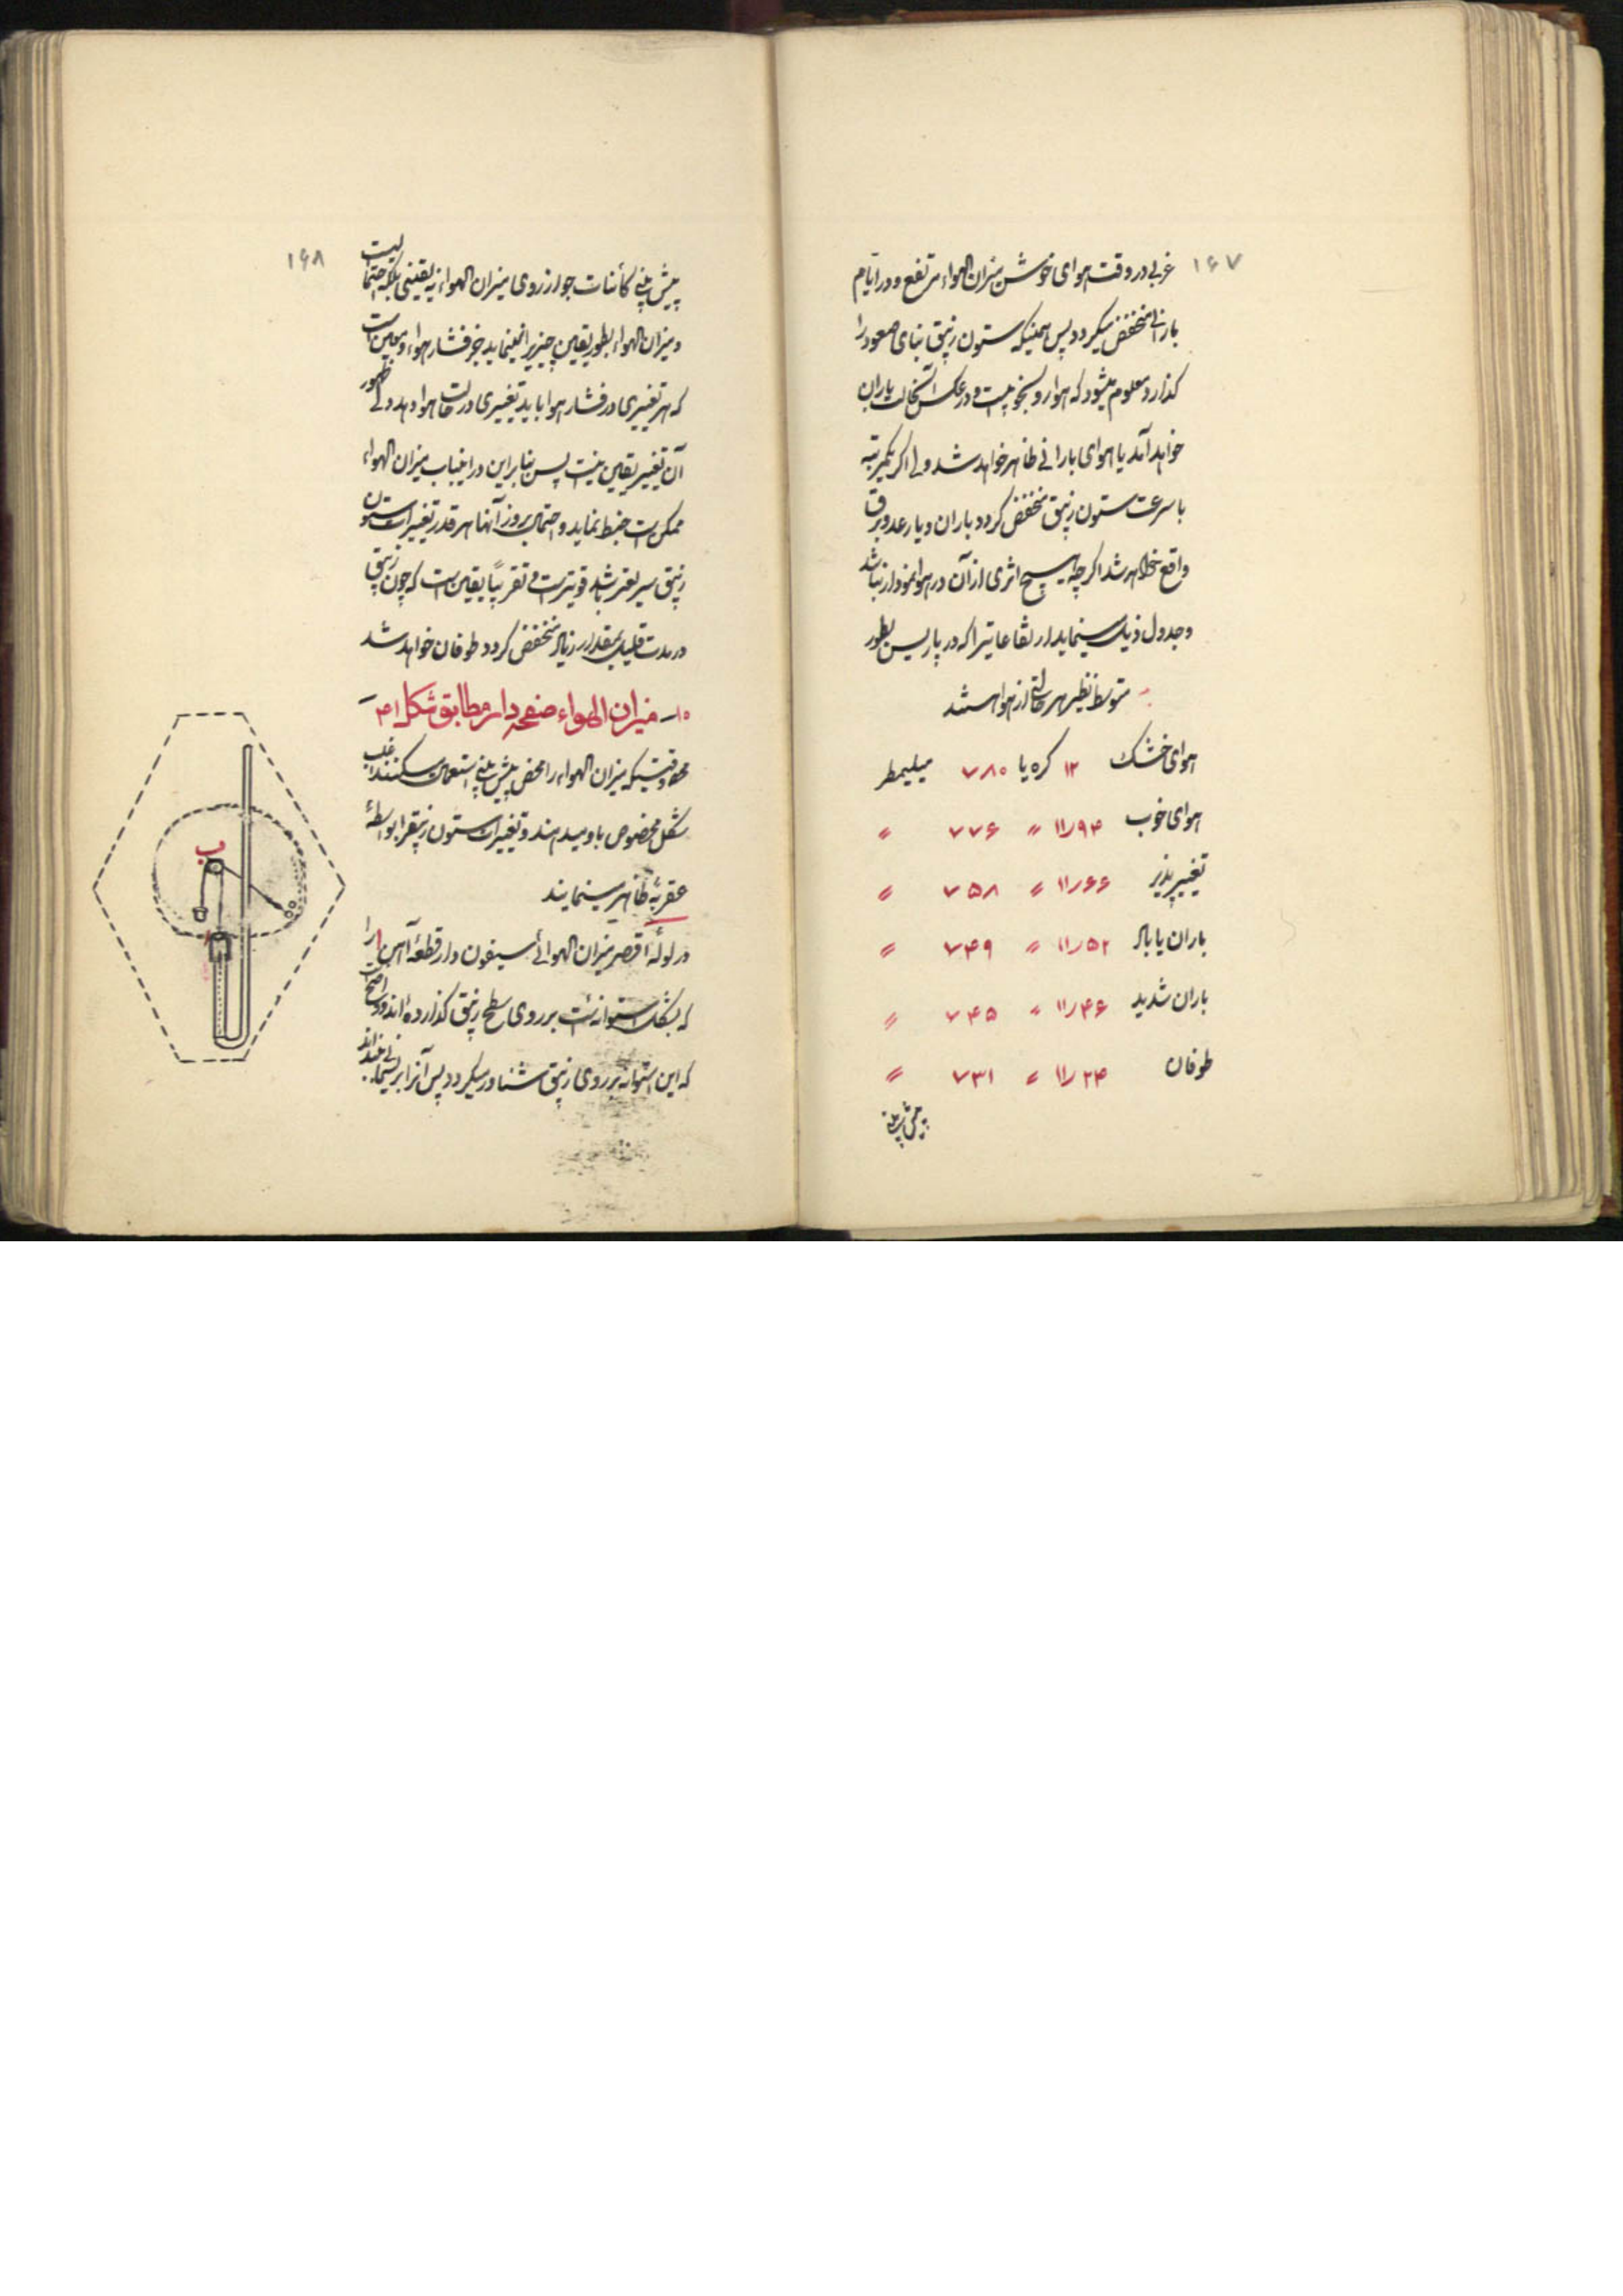 ۱۶۷
غربی در وقت هوای خوش میزان الهواء مرتفع و در ایام
بارانی منخفض میگردد پس همینکه ستون زیبق بنای صعود را
گذارد معلوم میشود که هوا رو بخوبیست و در عکس آنحالت باران
خواهد آمد یا هوای بارانی ظاهر خواهد شد ولی اگر یکمرتبه
با سرعت ستون زیبق منخفض گردد باران و یا رعد و برق
واقع خواهد شد اگرچه هیچ اثری از آن در هوا نمودار نباشد
و جدول ذیل مینماید ارتفاعاتیرا که در پاریس بطور
متوسط نظیر هر حالتی از هوا هستند
هوای خشک ۱۲ گره یا ۷۸۰ میلیمطر
هوای خوب ۱۱٫۹۴ " ۷۷۶ "
تغییر پذیر ۱۱٫۶۶ " ۷۵۸ "
باران یا باد ۱۱٫۵۲ " ۷۴۹ "
باران شدید ۱۱٫۴۶ " ۷۴۵ "
طوفان ۱۱٫۲۴ " ۷۳۱ "
پیش بینی
۱۶۸
پیش بینی کائنات جو از روی میزان الهواء نه یقینی بلکه احتمالیست
و میزان الهواء بطور یقین چیزیرا نمینماید جز فشار هواء و معین است
که هر تغییری در فشار هوا باید تغییری در حالت هوا دهد ولی ظهور
آن تغییر یقین نیست پس بنابراین در اینباب میزان الهواء
ممکن است خبط نماید و احتمال بروز آنها هر قدر تغییرات ستون
زیبق سریعتر باشد قویتر است و تقریباً یقین است که چون زیبق
در مدت قلیل بمقدار زیاد منخفض گردد طوفان خواهد شد
۱۰ــ میزان الهواء صفحه دار مطابق شکل ۴۱
وقتیکه میزان الهواء را محض پیش بینی استعمال میکنند اغلب
شکل مخصوص باو میدهند و تغییرات ستون زیبقرا بواسطهٔ
عقربهٔ ظاهر مینمایند
در لولهٔ اقصر میزان الهوائی سیفون دار قطعهٔ آهن ا را
که بشکل استوانه است بر روی سطح زیبق گذارده‌اند و واضح است
که این استوانه بر روی زیبق شناور میگردد پس آنرا بریسمانی بسته‌اند
ب
ا